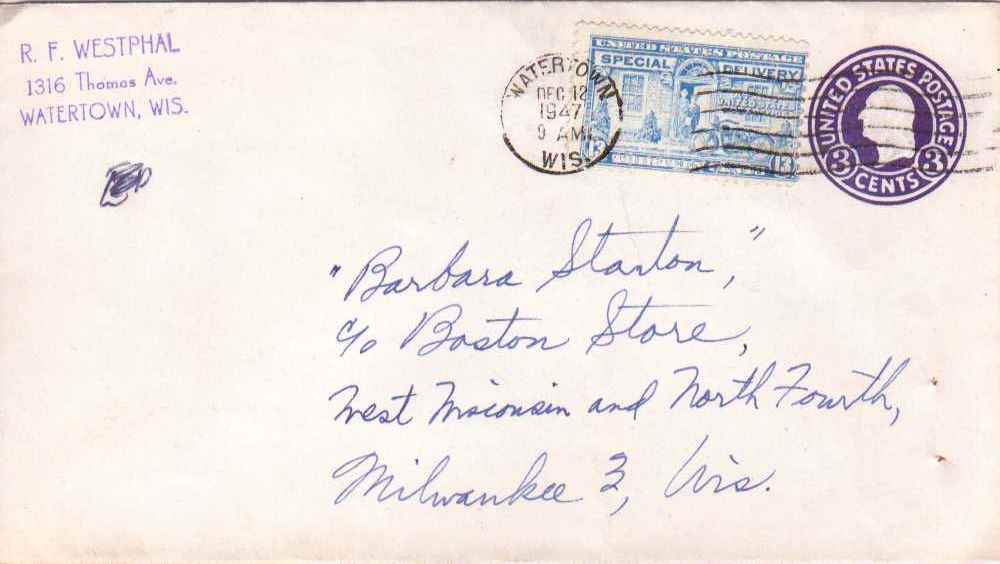 R. F. WESTPHAL
1316 Thomas Ave.
WATERTOWN, WIS.
WATERTOWN
DEC 12
1947
9 AM
WIS.
UNITED STATES POSTAGE
SPECIAL DELIVERY
13 13
UNITED STATES POSTAGE
3 3
CENTS
"Barbara Stanton",
c/o Boston Store,
West Wisconsin and North Fourth,
Milwaukee 3, Wis.